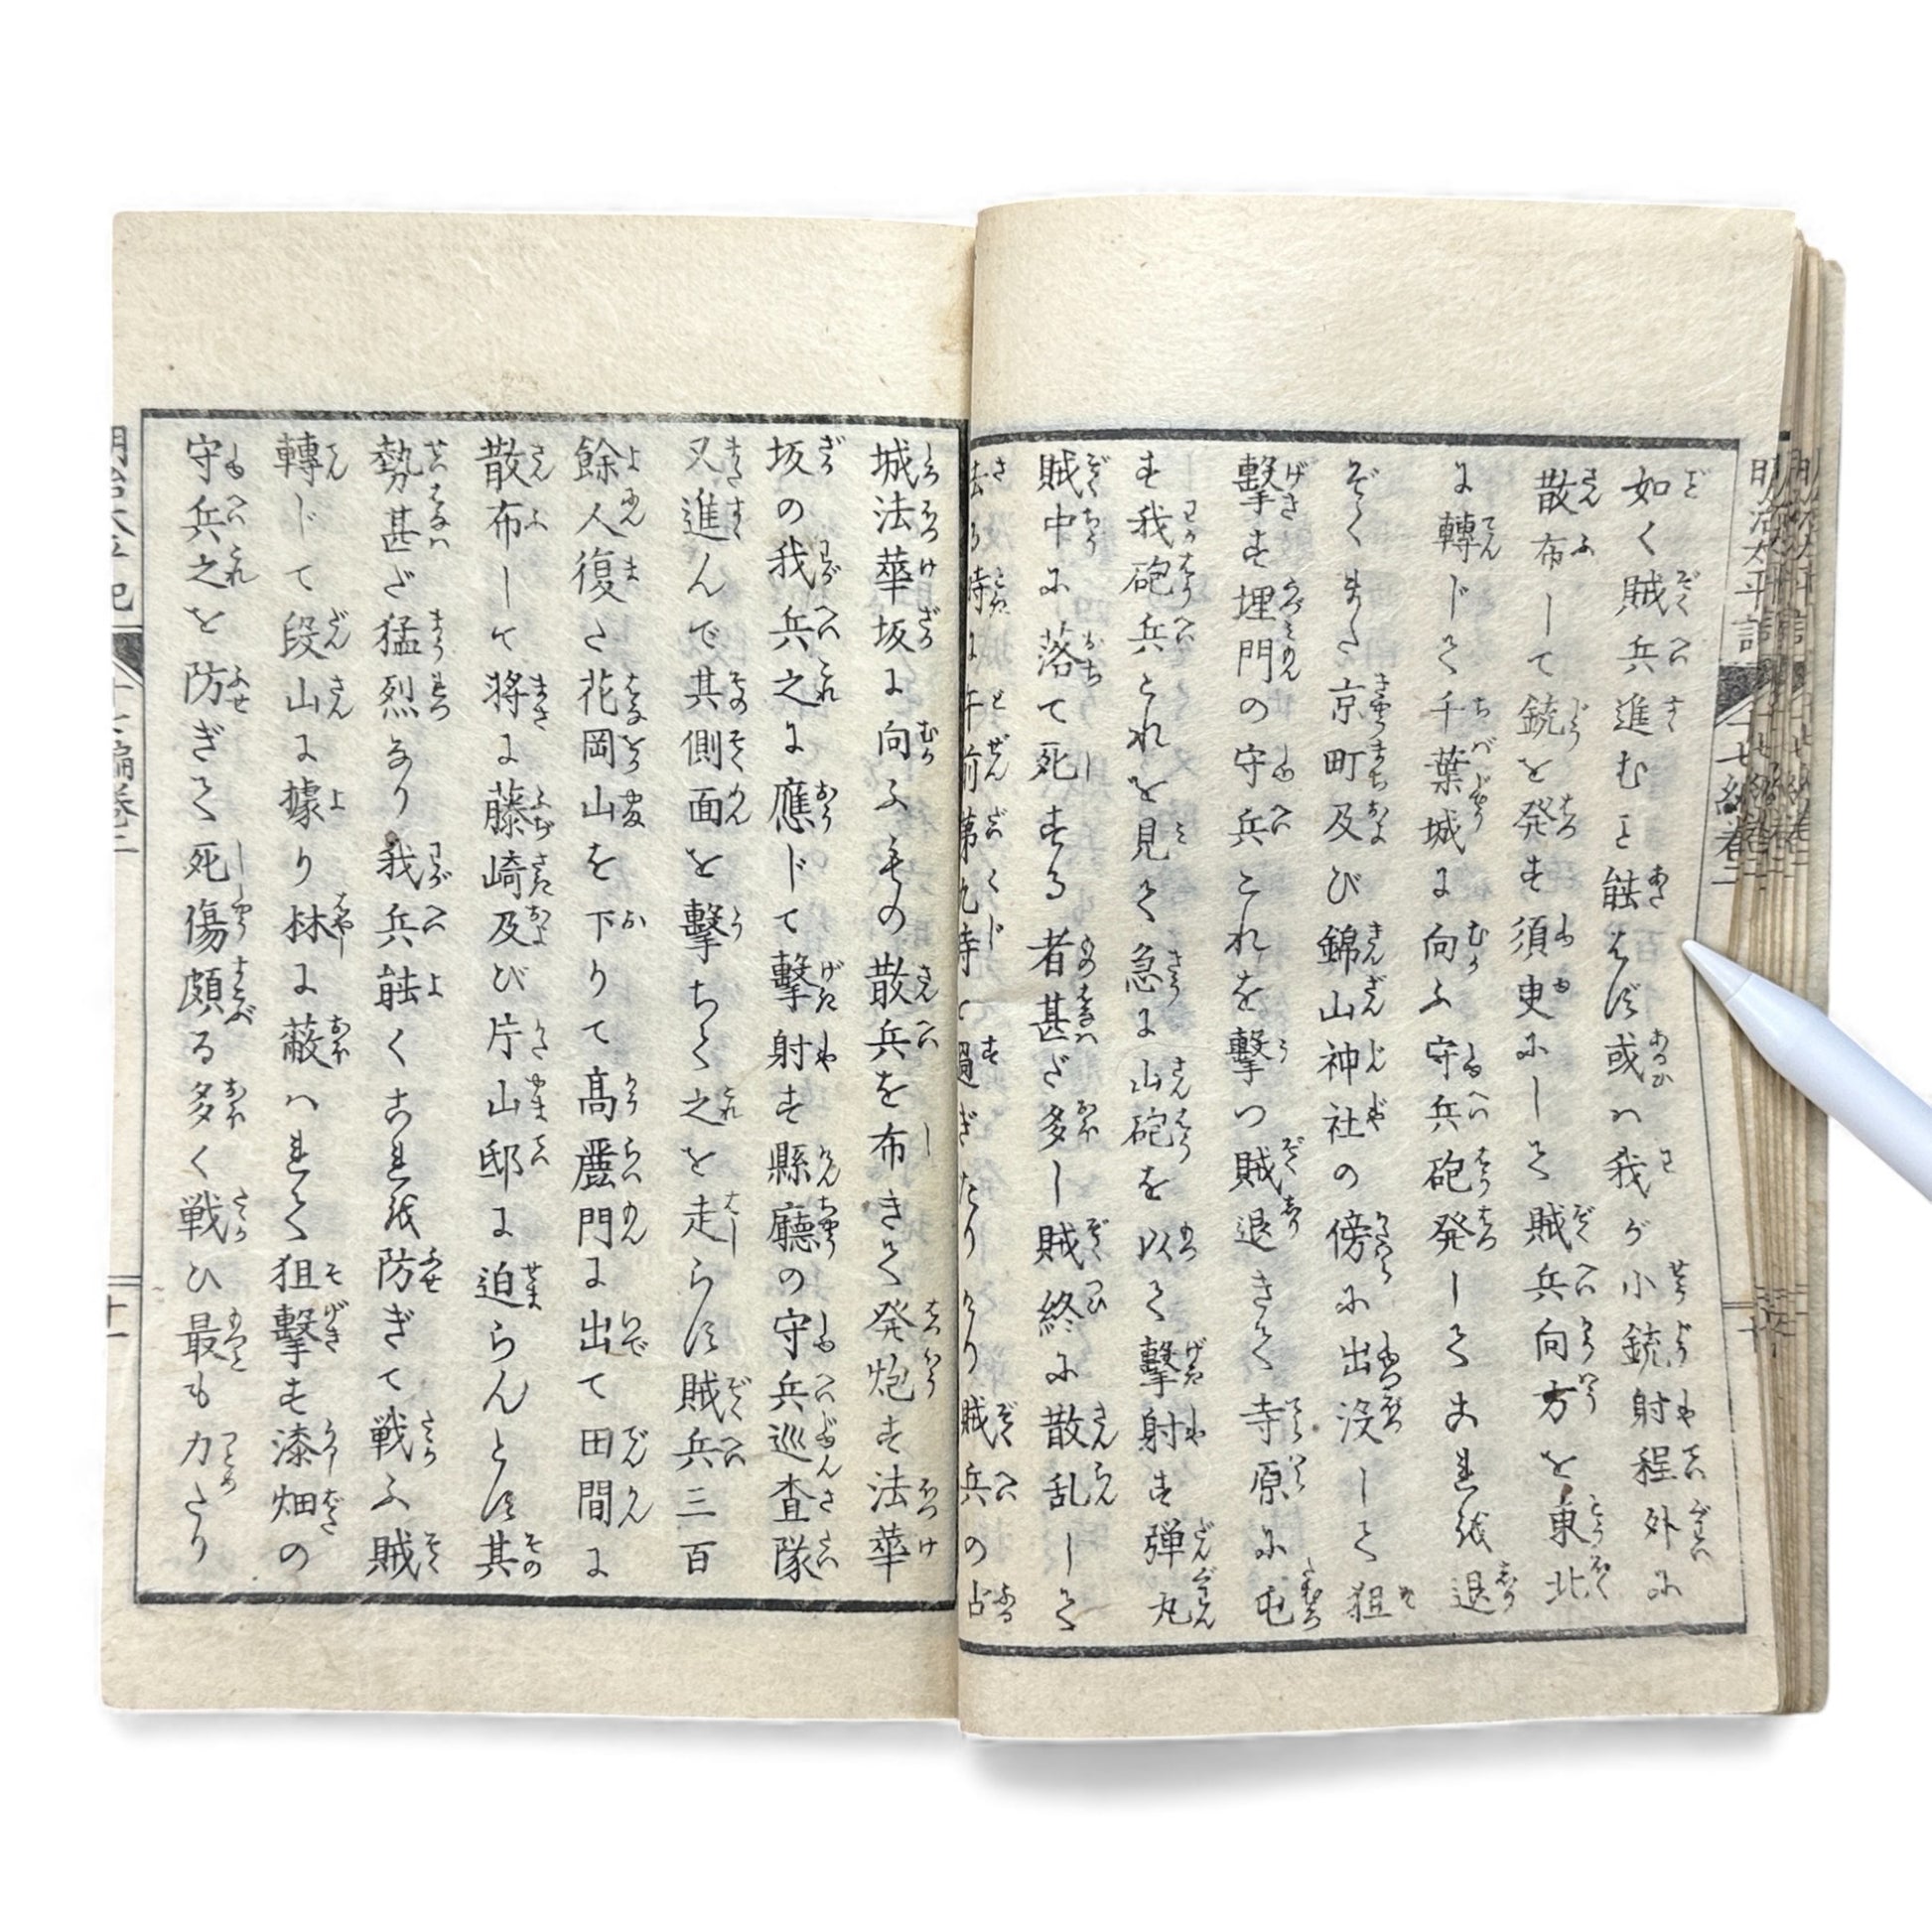 如く賊兵進むこと能はず或ハ我が小銃射程外に
散布して銃を発す須臾にして賊兵向方を東北
に轉じて千葉城に向ふ守兵砲発してこれを退
ぞくまた京町及び錦山神社の傍に出没して狙
撃す埋門の守兵これを撃つ賊退きて寺原に屯
す我砲兵これを見て急に山砲を以て撃射す弾丸
賊中に落て死する者甚だ多し賊終に散乱して
去る時に午前第九時を過ぎたりけり賊兵の占
城法華坂に向ふもの散兵を布きて発炮す法華
坂の我兵之に應じて撃射す縣廳の守兵巡査隊
又進んで其側面を撃ちて之を走らす賊兵三百
餘人復た花岡山を下りて高麗門に出て田間に
散布して将に藤崎及び片山邸に迫らんとす其
勢甚だ猛烈なり我兵能くこれを防ぎて戦ふ賊
轉じて段山に據り林に蔽ハれて狙撃す漆畑の
守兵之を防ぎて死傷頗る多く戦ひ最も力たり
明治太平記 十七編巻二
明治太平記 十七編巻二 十一